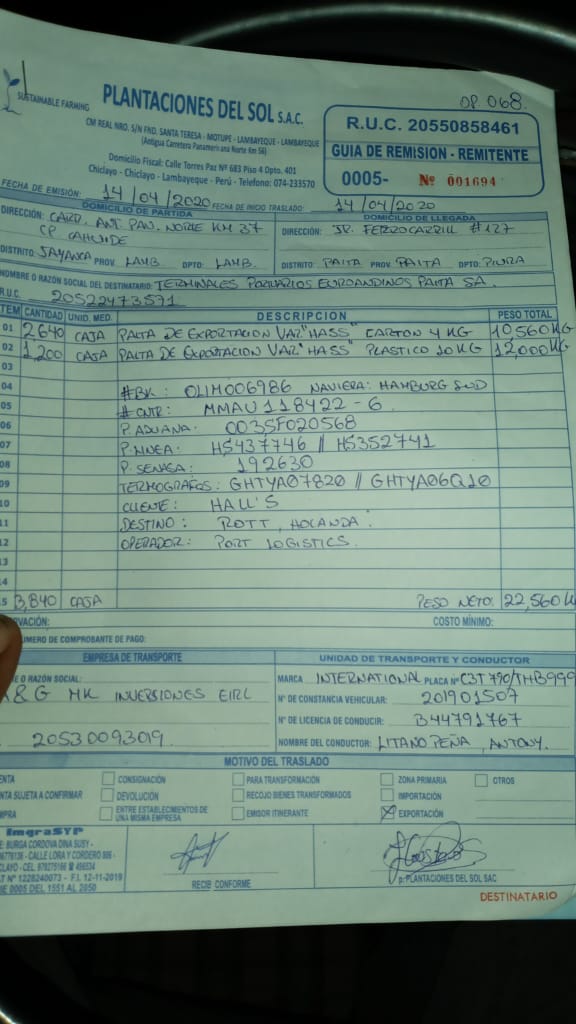 OP. 068.
SUSTAINABLE FARMING
PLANTACIONES DEL SOL S.A.C.
CM REAL NRO. S/N FND. SANTA TERESA - MOTUPE - LAMBAYEQUE - LAMBAYEQUE
(Antigua Carretera Panamericana Norte Km 56)
Domicilio Fiscal: Calle Torres Paz Nº 683 Piso 4 Dpto. 401
Chiclayo - Chiclayo - Lambayeque - Perú - Telefono: 074-233570
R.U.C. 20550858461
GUIA DE REMISION - REMITENTE
0005- Nº 001694
FECHA DE EMISIÓN: 14/04/2020 FECHA DE INICIO TRASLADO: 14/04/2020
DOMICILIO DE PARTIDA
DIRECCIÓN: CARR. ANT. PAN. NORTE KM 37
CP CAHUIDE
DISTRITO: JAYANCA PROV. LAMB. DPTO: LAMB.
DOMICILIO DE LLEGADA
DIRECCIÓN: JR. FERROCARRIL #127
DISTRITO: PAITA PROV. PAITA DPTO: PIURA
NOMBRE O RAZÓN SOCIAL DEL DESTINATARIO: TERMINALES PORTUARIOS EUROANDINOS PAITA SA.
R.U.C. 20522473571
ITEM CANTIDAD UNID. MED. DESCRIPCION PESO TOTAL
01 2640 CAJA PALTA DE EXPORTACION VAR."HASS" CARTON 4 KG 10,560KG
02 1,200 CAJA PALTA DE EXPORTACION VAR."HASS" PLASTICO 10 KG 12,000KG
03
04 #BK: OLIM006986 NAVIERA: HAMBURG SUD
05 #CNTR: MMAU118422-6
06 P. ADUANA: 0035F020568
07 P. LINEA: HS437746 // HS352741
08 P. SENASA: 192630
09 TERMOGRAFOS: GHTYA07820 // GHTYA06Q10
10 CLIENTE: HALL'S
11 DESTINO: ROTT, HOLANDA.
12 OPERADOR: PORT LOGISTICS.
13
14
5 3,840 CAJA PESO NETO: 22,560 K
RVACIÓN: COSTO MÍNIMO:
ÚMERO DE COMPROBANTE DE PAGO:
EMPRESA DE TRANSPORTE
E O RAZÓN SOCIAL:
A & G MK INVERSIONES EIRL
20530093019
UNIDAD DE TRANSPORTE Y CONDUCTOR
MARCA INTERNATIONAL PLACA Nº C3T 790/THB999
Nº DE CONSTANCIA VEHICULAR: 201901507
Nº DE LICENCIA DE CONDUCIR: B44791767
NOMBRE DEL CONDUCTOR: LITANO PEÑA, ANTONY.
MOTIVO DEL TRASLADO
ENTA CONSIGNACIÓN PARA TRANSFORMACIÓN ZONA PRIMARIA OTROS
NTA SUJETA A CONFIRMAR DEVOLUCIÓN RECOJO BIENES TRANSFORMADOS IMPORTACIÓN
MPRA ENTRE ESTABLECIMIENTOS DE UNA MISMA EMPRESA EMISOR ITINERANTE EXPORTACIÓN
ImgraSYP
E: BURGA CORDOVA DINA SUSY -
- CALLE LORA Y CORDERO
LAYO - CEL. 978275166 496534
T Nº 1228240073 - F.I. 12-11-2019
IE 0005 DEL 1551 AL 2050
RECIBI CONFORME
p. PLANTACIONES DEL SOL SAC
DESTINATARIO